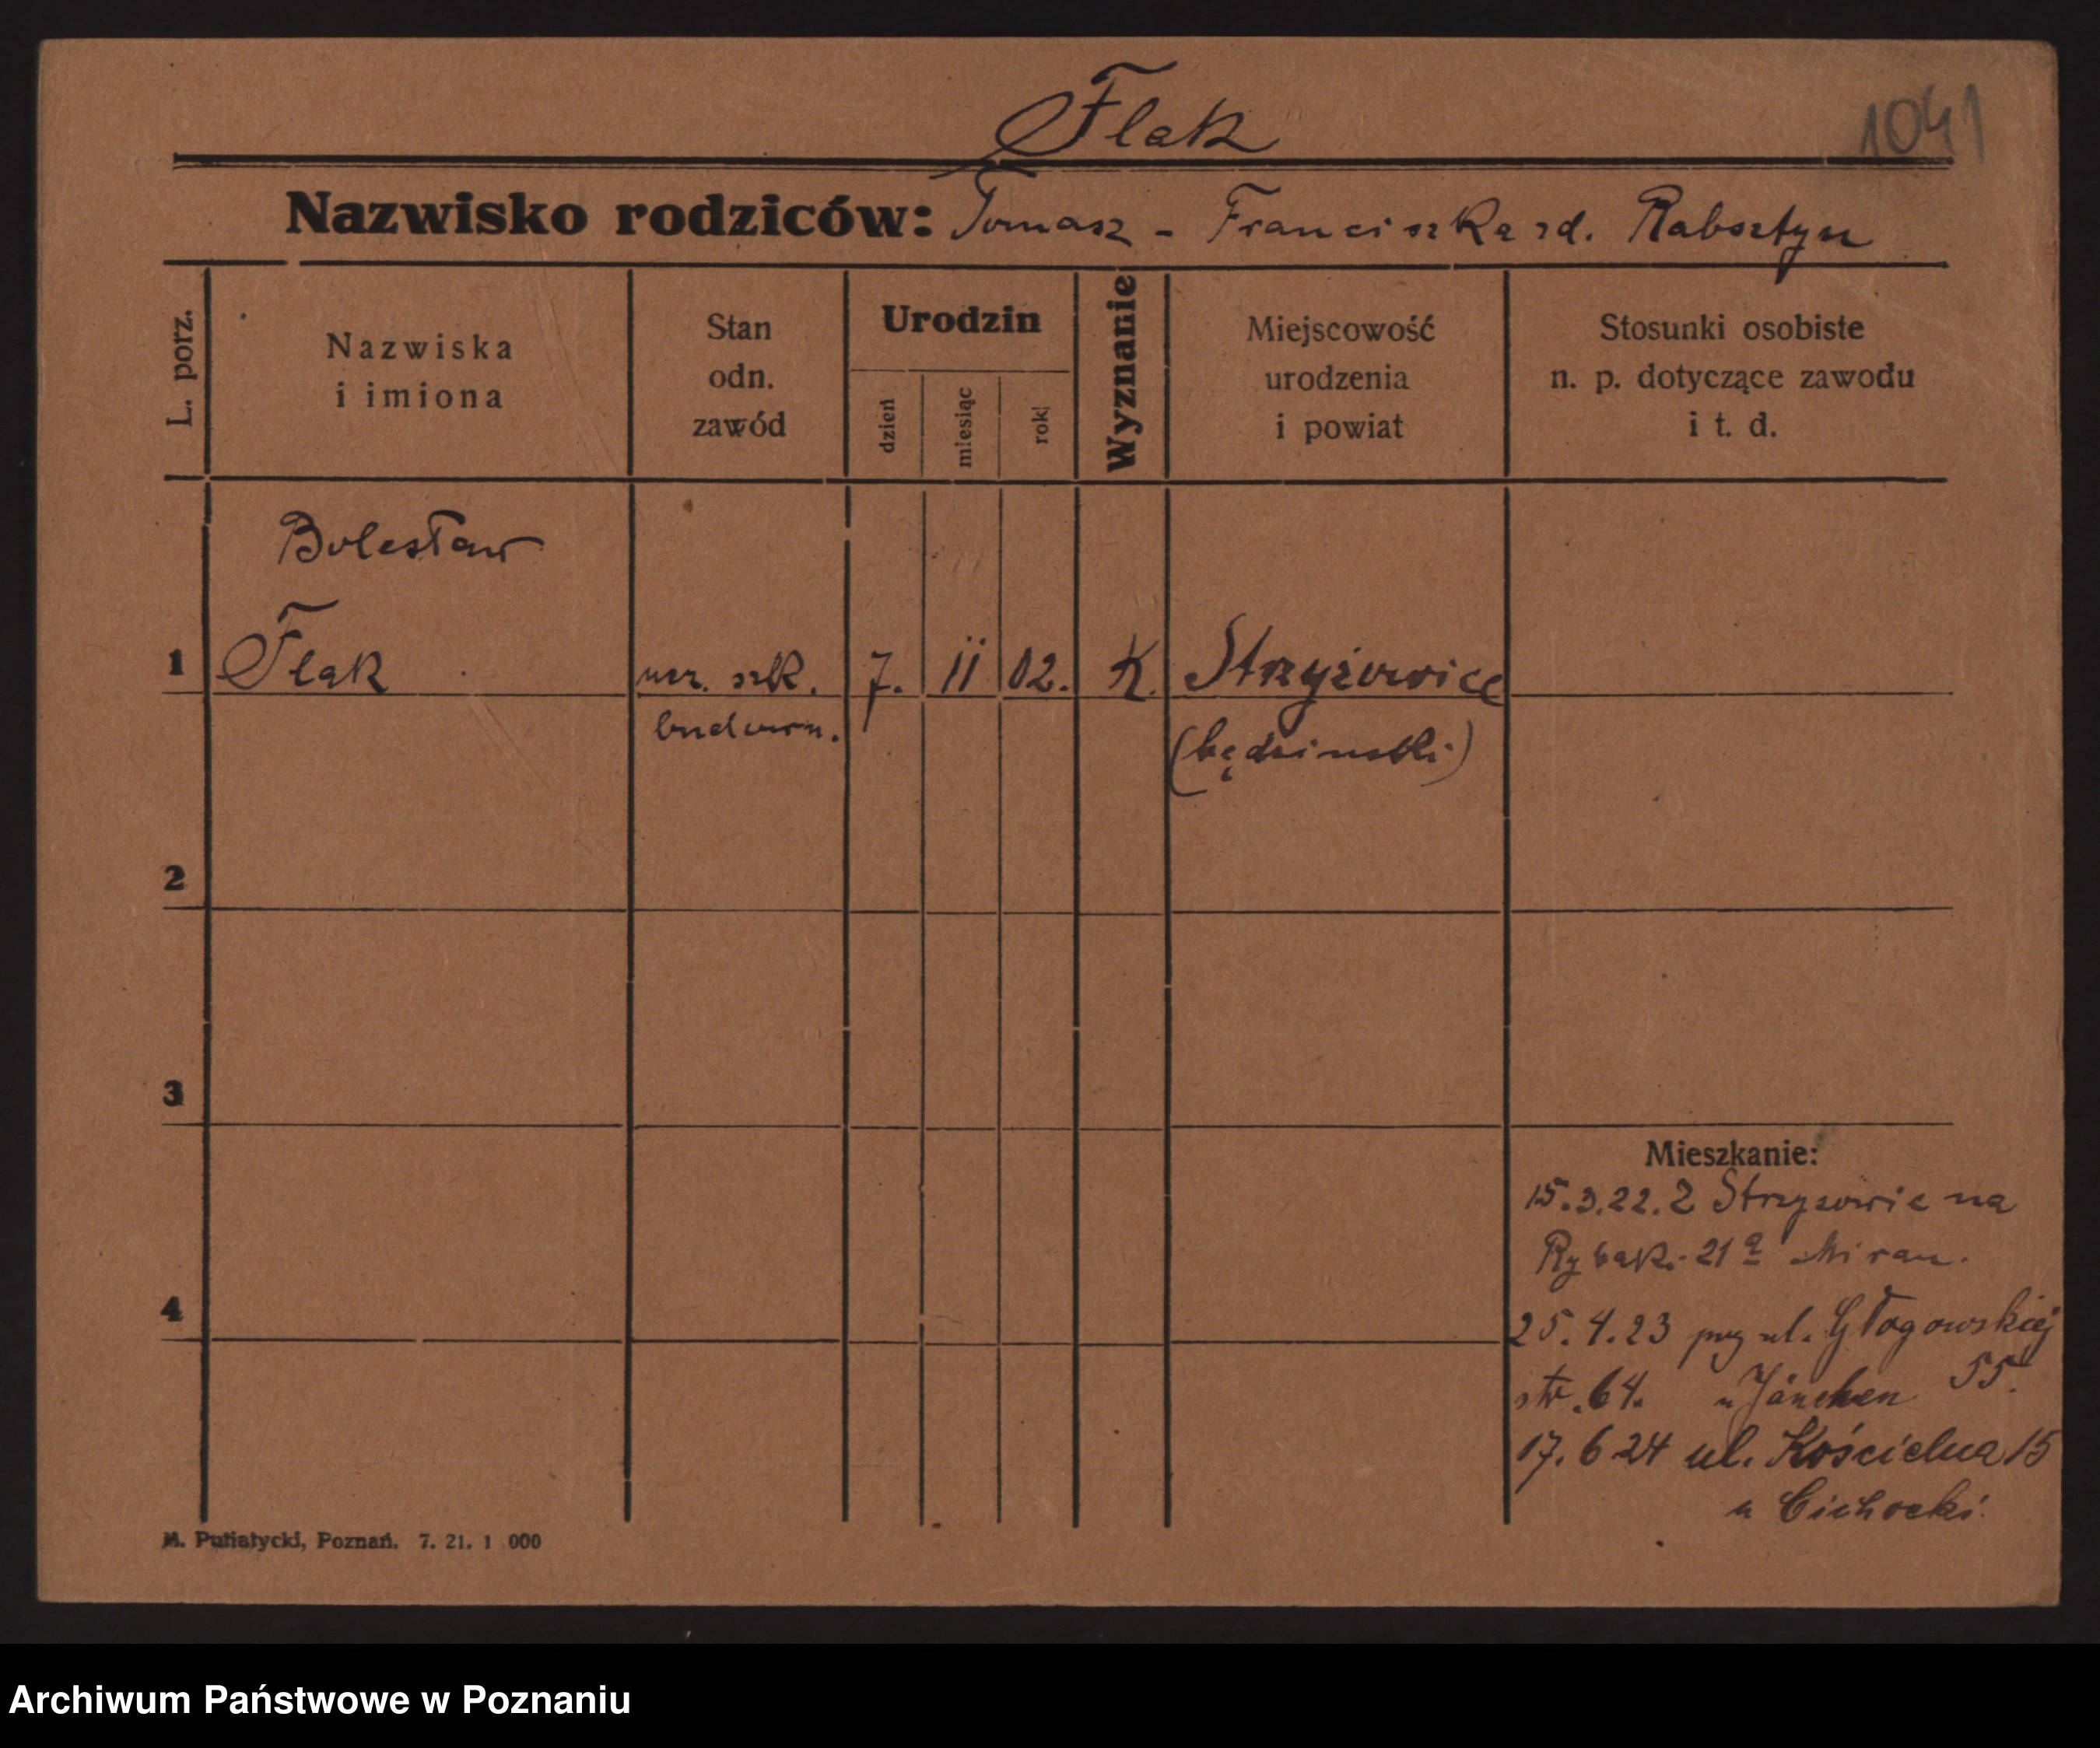 Flak
1041
Nazwisko rodziców: Tomasz - Franciszka zd. Rabsztyn
L. porz.
Nazwiska
i imiona
Stan
odn.
zawód
Urodzin
dzień
miesiąc
rok
Wyznanie
Miejscowość
urodzenia
i powiat
Stosunki osobiste
n. p. dotyczące zawodu
i t. d.
Bolesław
1 Flak ucz. szk. 7. 11 02. K. Strzyżowice
budown.
(będziński)
2
3
Mieszkanie:
15.3.22. Z Strzyżowic na
Rybaki 21a
4
25.4.23 przy ul. Głogowskiej
55.
str. 64. u Jänchen
17.6 24 ul. Kościelna 15
u Cichocki
M. Putiatycki, Poznań. 7. 21. 1 000
Archiwum Państwowe w Poznaniu